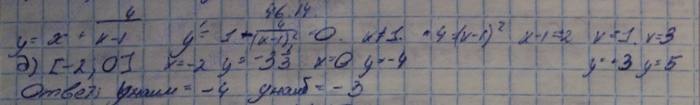 46.14
y = x + 4/(x-1) y' = 1 - 4/(x-1)² = 0. x≠1. 4=(x-1)² x-1=2 x=1. x=3
д) [-2, 0] x=-2 y=-3 1/3 x=0 y=-4 y=-3 y=5
Ответ: yнаим = -4 yнаиб = -3